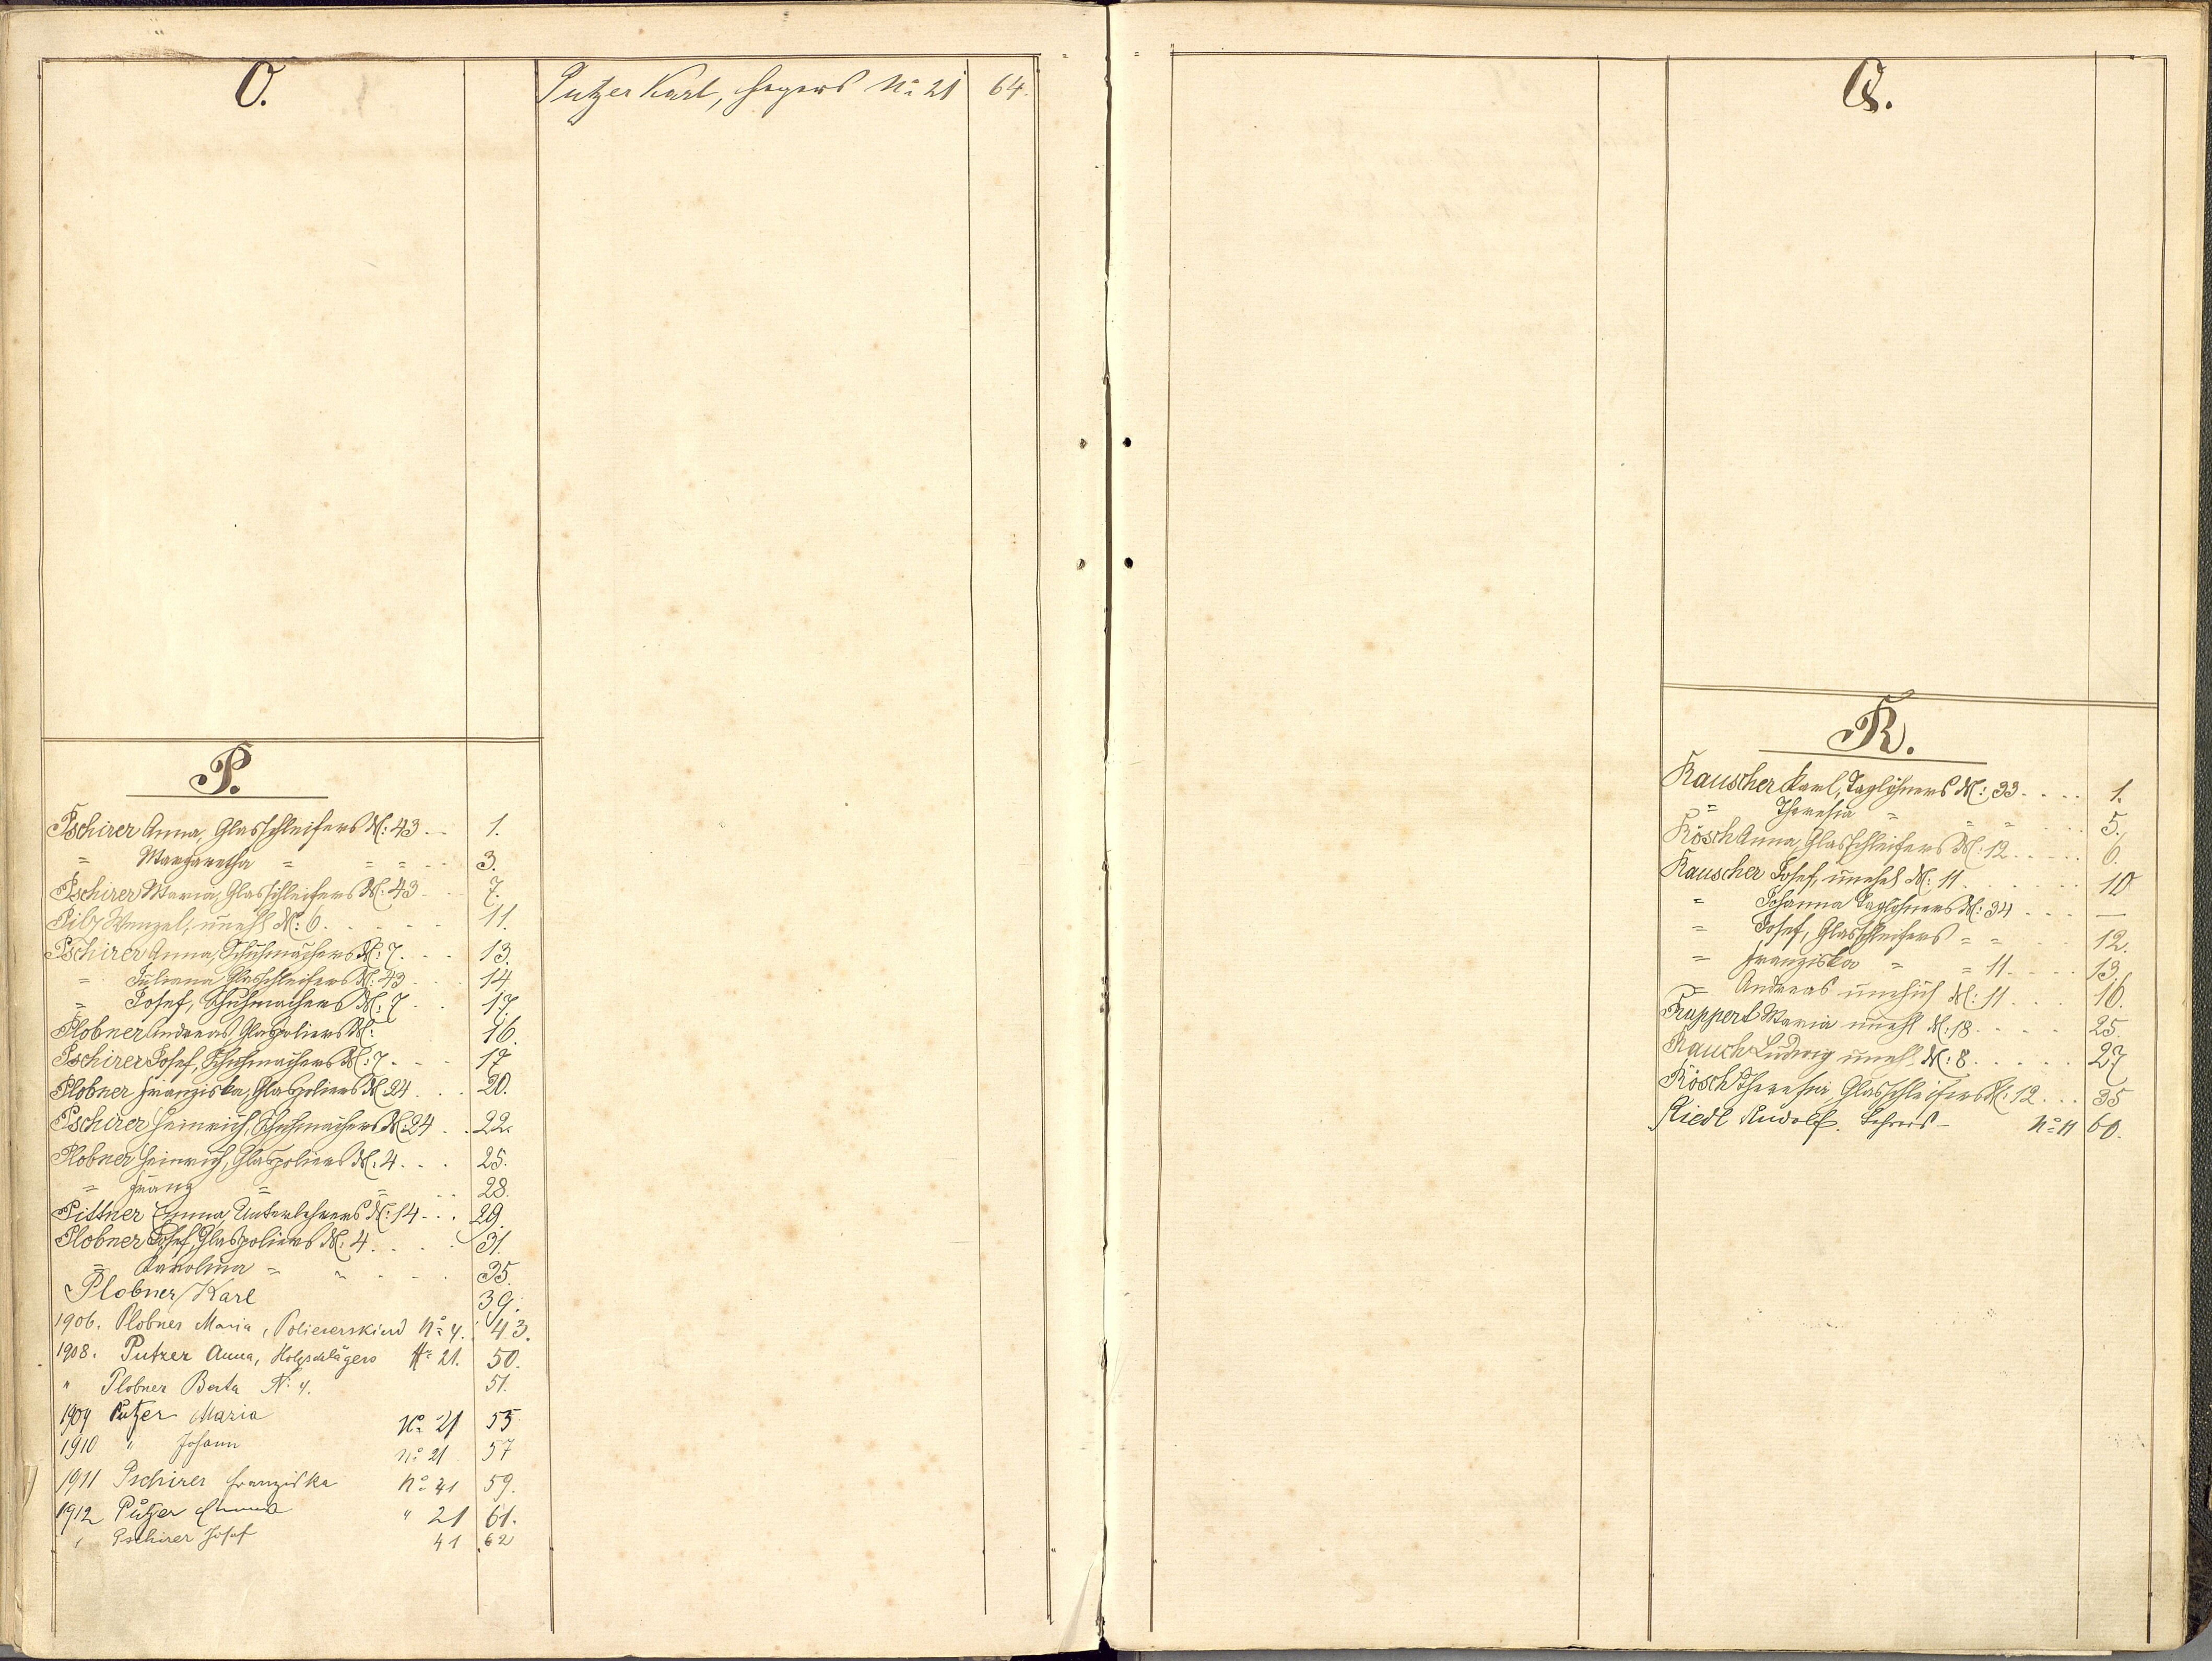 O.
P.
Pschirer Anna, Glasschleifers N: 43 1.
" Margaretha " " " 3.
Pschirer Maria, Glasschleifers N: 43 7.
Pilz Wenzel, unehl N: 6 11.
Pschirer Anna, Schuhmachers N: 7 13.
" Juliana Glasschleifers N: 43 14.
" Josef, Schuhmachers N: 7 17.
Plobner Andreas Glaspoliers N: 16.
Pschirer Josef, Schuhmachers N: 7 17
Plobner Franziska, Glaspoliers N 24 20.
Pschirer Heinrich, Schuhmachers N: 24 22.
Plobner Heinrich, Glaspoliers N: 4 25.
" Franz " " 28.
Pittner Emma, Unterlehrers N: 14 29.
Plobner Josef, Glaspoliers N: 4 31.
" Karolina " " 35.
Plobner Karl 39.
1906. Plobner Maria, Poliererskind No 4. 43.
1908. Putzer Anna, Holzschlägers No 21. 50.
" Plobner Berta N: 4. 51.
1909 Putzer Maria No 21 55
1910 " Johann No 21 57
1911 Pschirer Franziska No 41 59.
1912 Putzer " 21 61.
" Pschirer Josef 41 62
Putzer Karl, Hegers No 21 64.
Q.
R.
Rauscher Karl, Taglöhners N: 33 1.
" Theresia " " " 5.
Rösch Anna, Glasschleifers N: 12 6.
Rauscher Josef, unehel N: 11 10
" Johanna Taglöhners N: 34 —
" Josef, Glasschleifers " " 12.
" Franziska " " 11 13.
" Andreas unehlich N: 11 16.
Ruppert Maria unehl N: 18 25.
Rauch Ludwig unehl. N: 8 27
Rösch Theresia, Glasschleifers N: 12 35
Riedl Rudolf. Lehrers No 11 60.